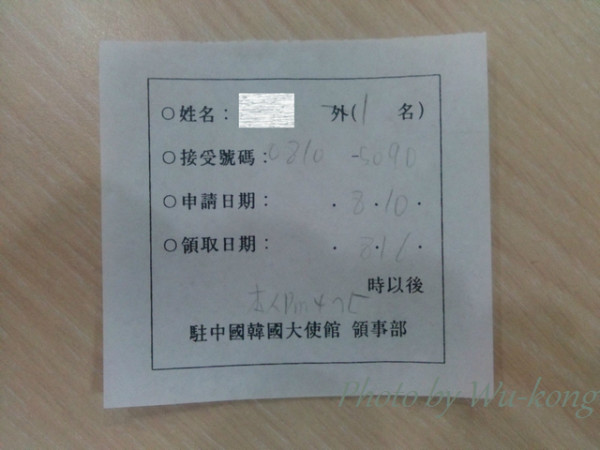 ○姓名： 外(1 名)
○接受號碼：0810 -5090
○申請日期： . 8 . 10 .
○領取日期： . 8 .
時以後
本人Pm
駐中國韓國大使館 領事部
Photo by Wu-kong